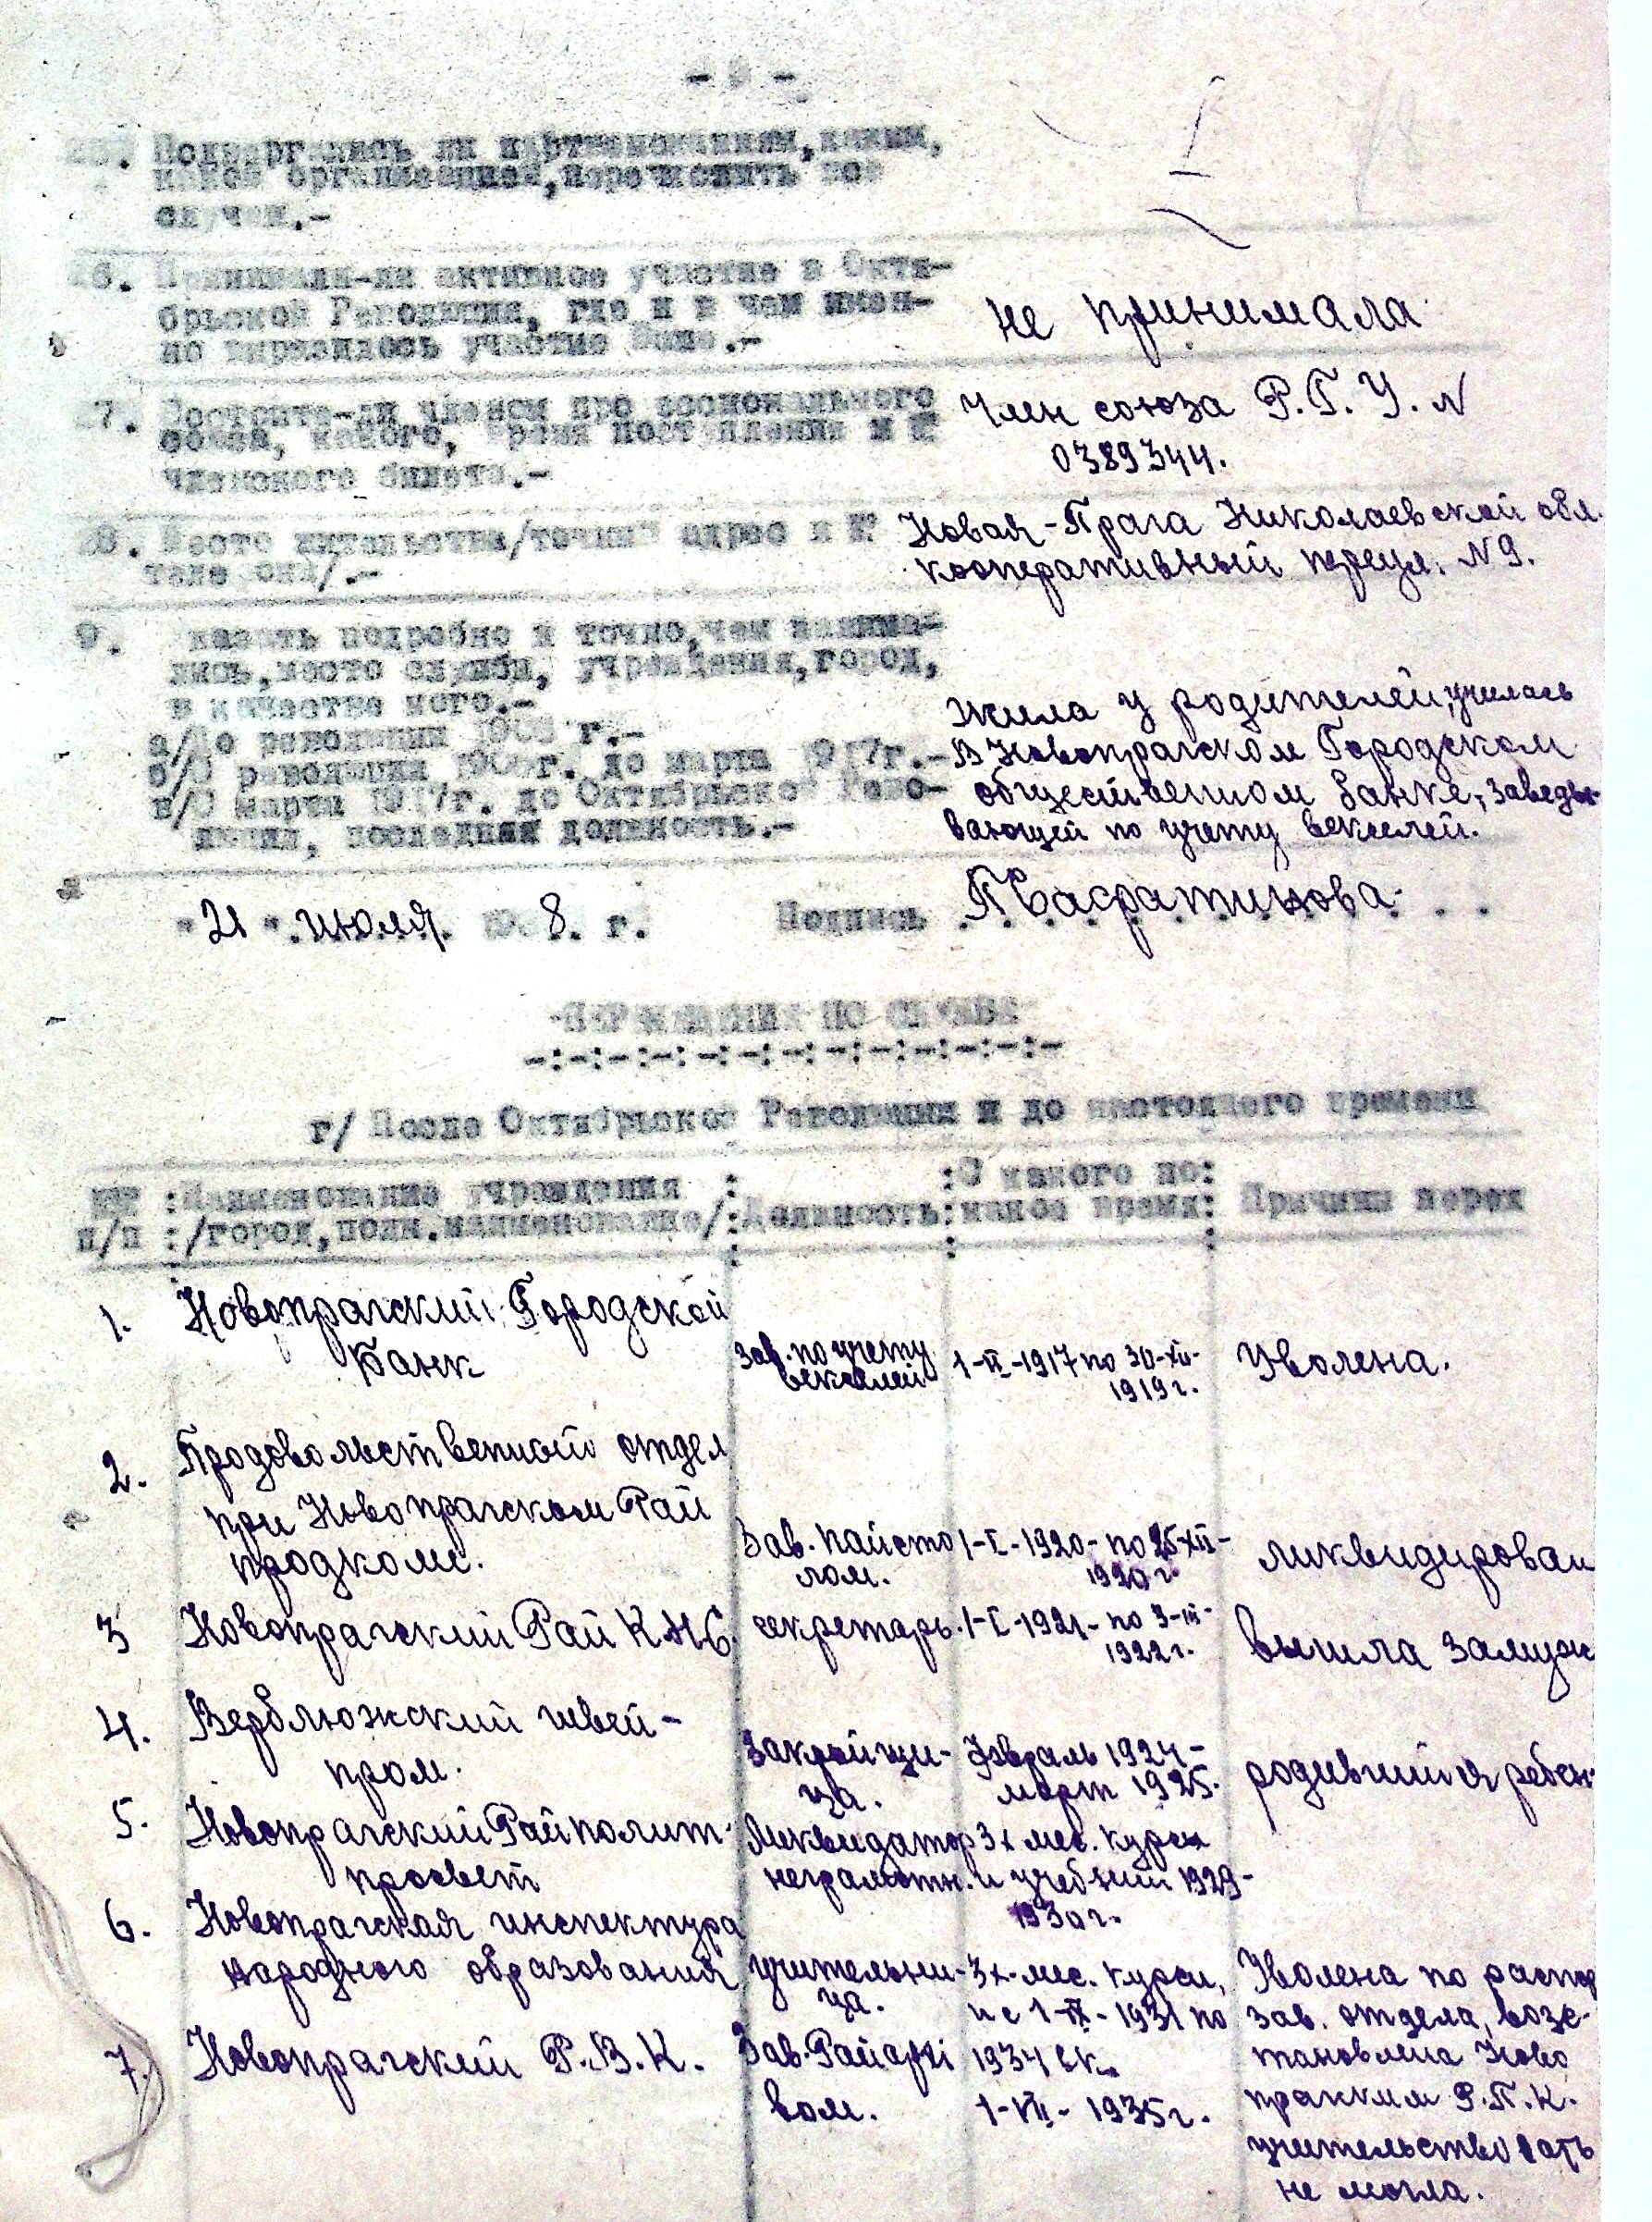 Подвергались ли партвзысканиям, каким,
какой организацией, перечислить все
случаи.-
6. Принимали-ли активное участие в Октя-
брьской Революции, где и в чем имен-
но выражалось участие Ваше.-
не принимала
7. Состоите-ли членом профессионального
союза, какого, время поступления и №
членского билета.-
Член союза Р.Г.У. N
0389344.
8. Место жительства/точный адрес и №
телефона/.-
Новая-Прага Николаевской обл.
кооперативный переул. N9.
9. Указать подробно и точно, чем занима-
лись, место службы, учреждения, город,
в качестве кого.-
а/До революции 1905 г.-
б/С революции 1905г. до марта 1917г.-
в/С марта 1917г. до Октябрьской Рево-
люции, последняя должность.-
жила у родителей, училась
В Новопрагском Городском
общественном банке, заведы-
вающей по учету векселей.
"21" июля 19 8. г. Подпись
-ПЕРЕМЕЩЕНИЯ ПО СЛУЖБЕ-
-:-:-:-:-:-:-:-:-:-:-:-:-
г/ После Октябрьской Революции и до настоящего времени
№№ п/п : Наименование учреждения /город, полн. наименование/ : Должность : С какого по какое время : Причины перех
1. Новопрагский Городской
Банк
Зав. по учету
векселей
1-II-1917 по 30-XII-
1919 г.
Уволена.
2. Продовольственный отдел
при Новопрагском Рай
продкоме.
Зав. пайсто
лом.
1-I-1920- по 25-XII-
1920 г.
ликвидирован
3 Новопрагский Рай К.Н.С.
секретарь.
1-I-1921- по 3-III-
1922 г.
вышла замуж
4. Верблюжский швей-
пром.
Закройщи-
ца.
Февраль 1924-
март 1925.
родившийся ребен
5. Новопрагский Райполит-
просвет
Ликвидатор
неграмотн.
3х мес. курсы
и учебный 1929-
1930 г.
6. Новопрагская инспектура
народного образования
учительни-
ца.
3х-мес. курсы,
и с 1-IX-1931 по
1934 г.
Уволена по распор
зав. отдела, возс-
тановлена Ново
прагским Р.П.К.
учительствовать
не могла.
7. Новопрагский Р.В.К.
Зав. Райархи
вом.
1-VII-1935г.